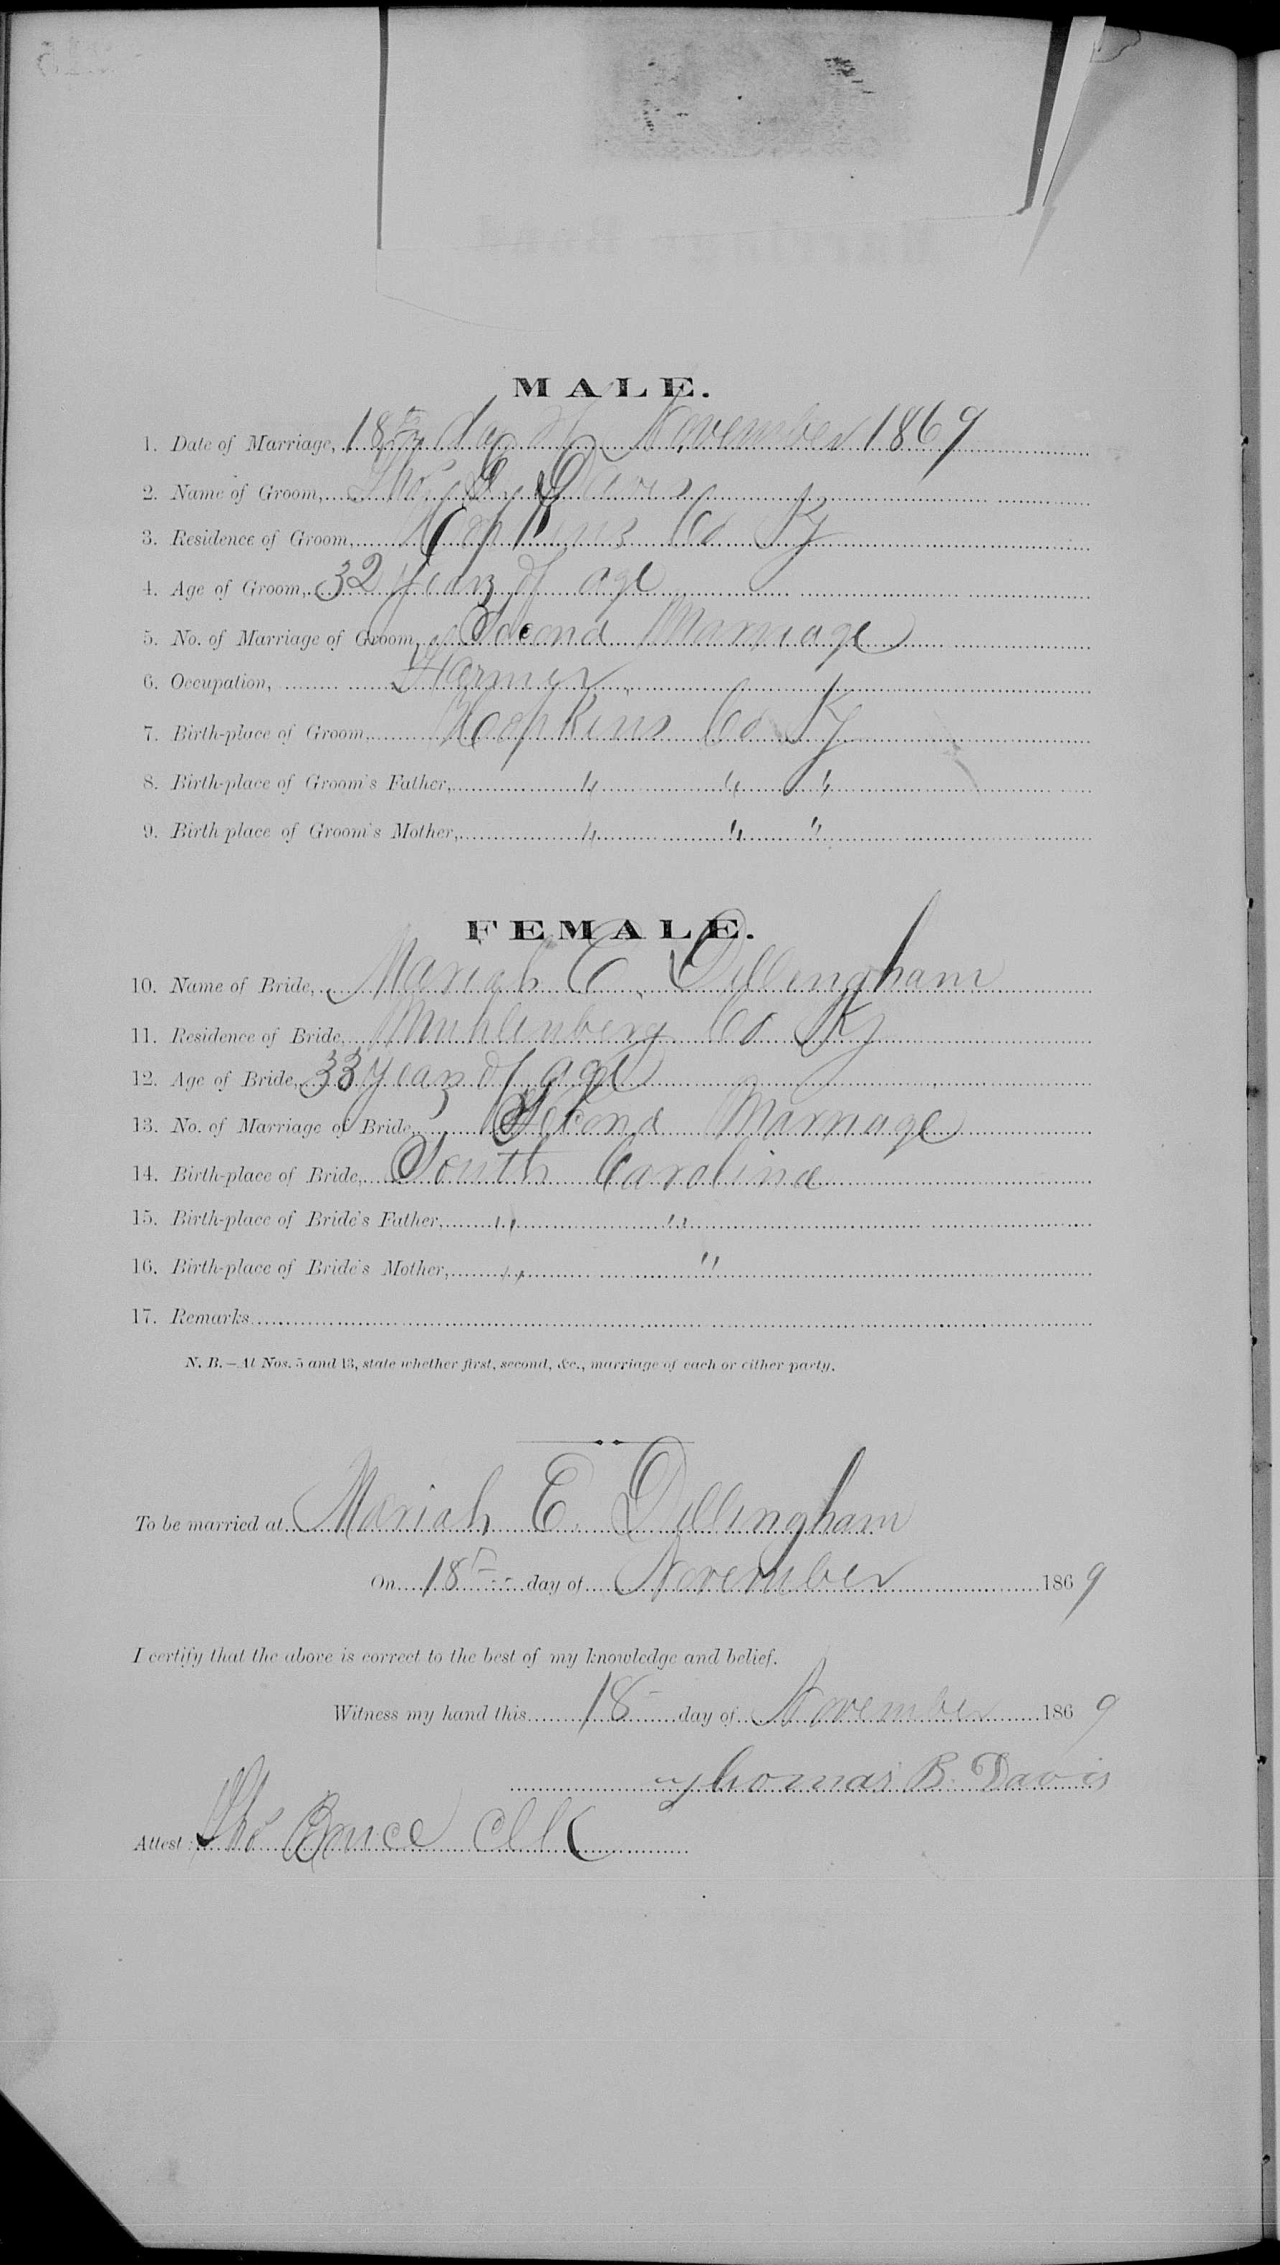 MALE.
1. Date of Marriage, 18th day of November 1869
2. Name of Groom, Thos Davis
3. Residence of Groom, Hopkins Co Ky
4. Age of Groom, 32 years of age
5. No. of Marriage of Groom, Second Marriage
6. Occupation, Farmer
7. Birth-place of Groom, Hopkins Co Ky
8. Birth-place of Groom's Father, " " "
9. Birth-place of Groom's Mother, " " "
FEMALE.
10. Name of Bride, Mariah E. Dillingham
11. Residence of Bride, Muhlenberg Co Ky
12. Age of Bride, 33 years of age
13. No. of Marriage of Bride, Second Marriage
14. Birth-place of Bride, South Carolina
15. Birth-place of Bride's Father, " "
16. Birth-place of Bride's Mother, " "
17. Remarks
N. B.—At Nos. 5 and 13, state whether first, second, &c., marriage of each or either party.
To be married at Mariah E. Dillingham
On 18th day of November 1869
I certify that the above is correct to the best of my knowledge and belief.
Witness my hand this 18 day of November 1869
Thomas B. Davis
Attest: Thos Bruce Clk